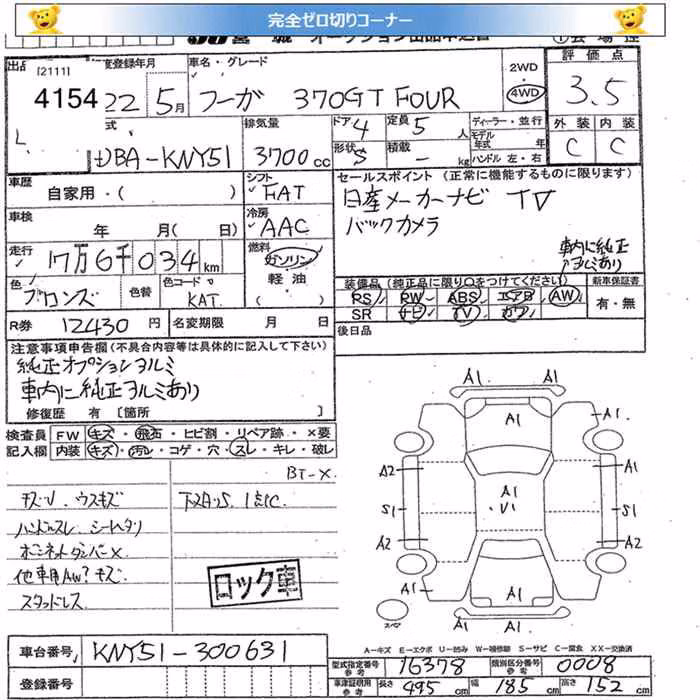 完全ゼロ切りコーナー
出品
[2111]
4154
度登録年月
22 5月
車名・グレード
フーガ 370GT FOUR
2WD
4WD
評価点
3.5
外装 内装
C C
式
DBA-KNY51
排気量
3700cc
ドア 4
形状 S
定員 5 人
積載 - kg
ディーラー・並行
モデル年式 年
ハンドル 左・右
車歴
自家用・( )
シフト
FAT
車検
年 月( 日)
冷房
AAC
走行
17万6千034km
燃料
ガソリン
軽油
色
ブロンズ
色替
色コード
KAT
R券 12430円
名変期限 月 日
セールスポイント(正常に機能するものに限ります)
日産メーカーナビ TV
バックカメラ
車内に純正
アルミあり
装備品(純正品に限り○をつけてください)
PS PW ABS エアB AW
SR ナビ TV カワ
新車保証書
有・無
後日品
注意事項申告欄(不具合内容等は具体的に記入して下さい)
純正オプションアルミ
車内に純正アルミあり
修復歴 有 [箇所 ]
検査員
記入欄
FW キズ・飛石・ヒビ割・リペア跡・×要
内装 キズ・汚れ・コゲ・穴・スレ・キレ・破レ
BT-X
キズU. ウスキズ
下スリキズ. 1点C.
ハンドルスレ シートヘタリ
ボンネットダンパーX
他車用AW? キズ
スタッドレス
ロック車
A1 A1
A1
A1
A2 A1
A1
U1
S1 S1
A2 A2
A1
A1
スペア
A-キズ E-エクボ U-凹み W-補修跡 S-サビ C-腐食 XX-交換済
車台番号 KNY51-300631
登録番号
型式指定番号 参考 16378
類別区分番号 参考 0008
車庫証明用 参考 長さ 495cm 幅 185cm 高さ 152cm